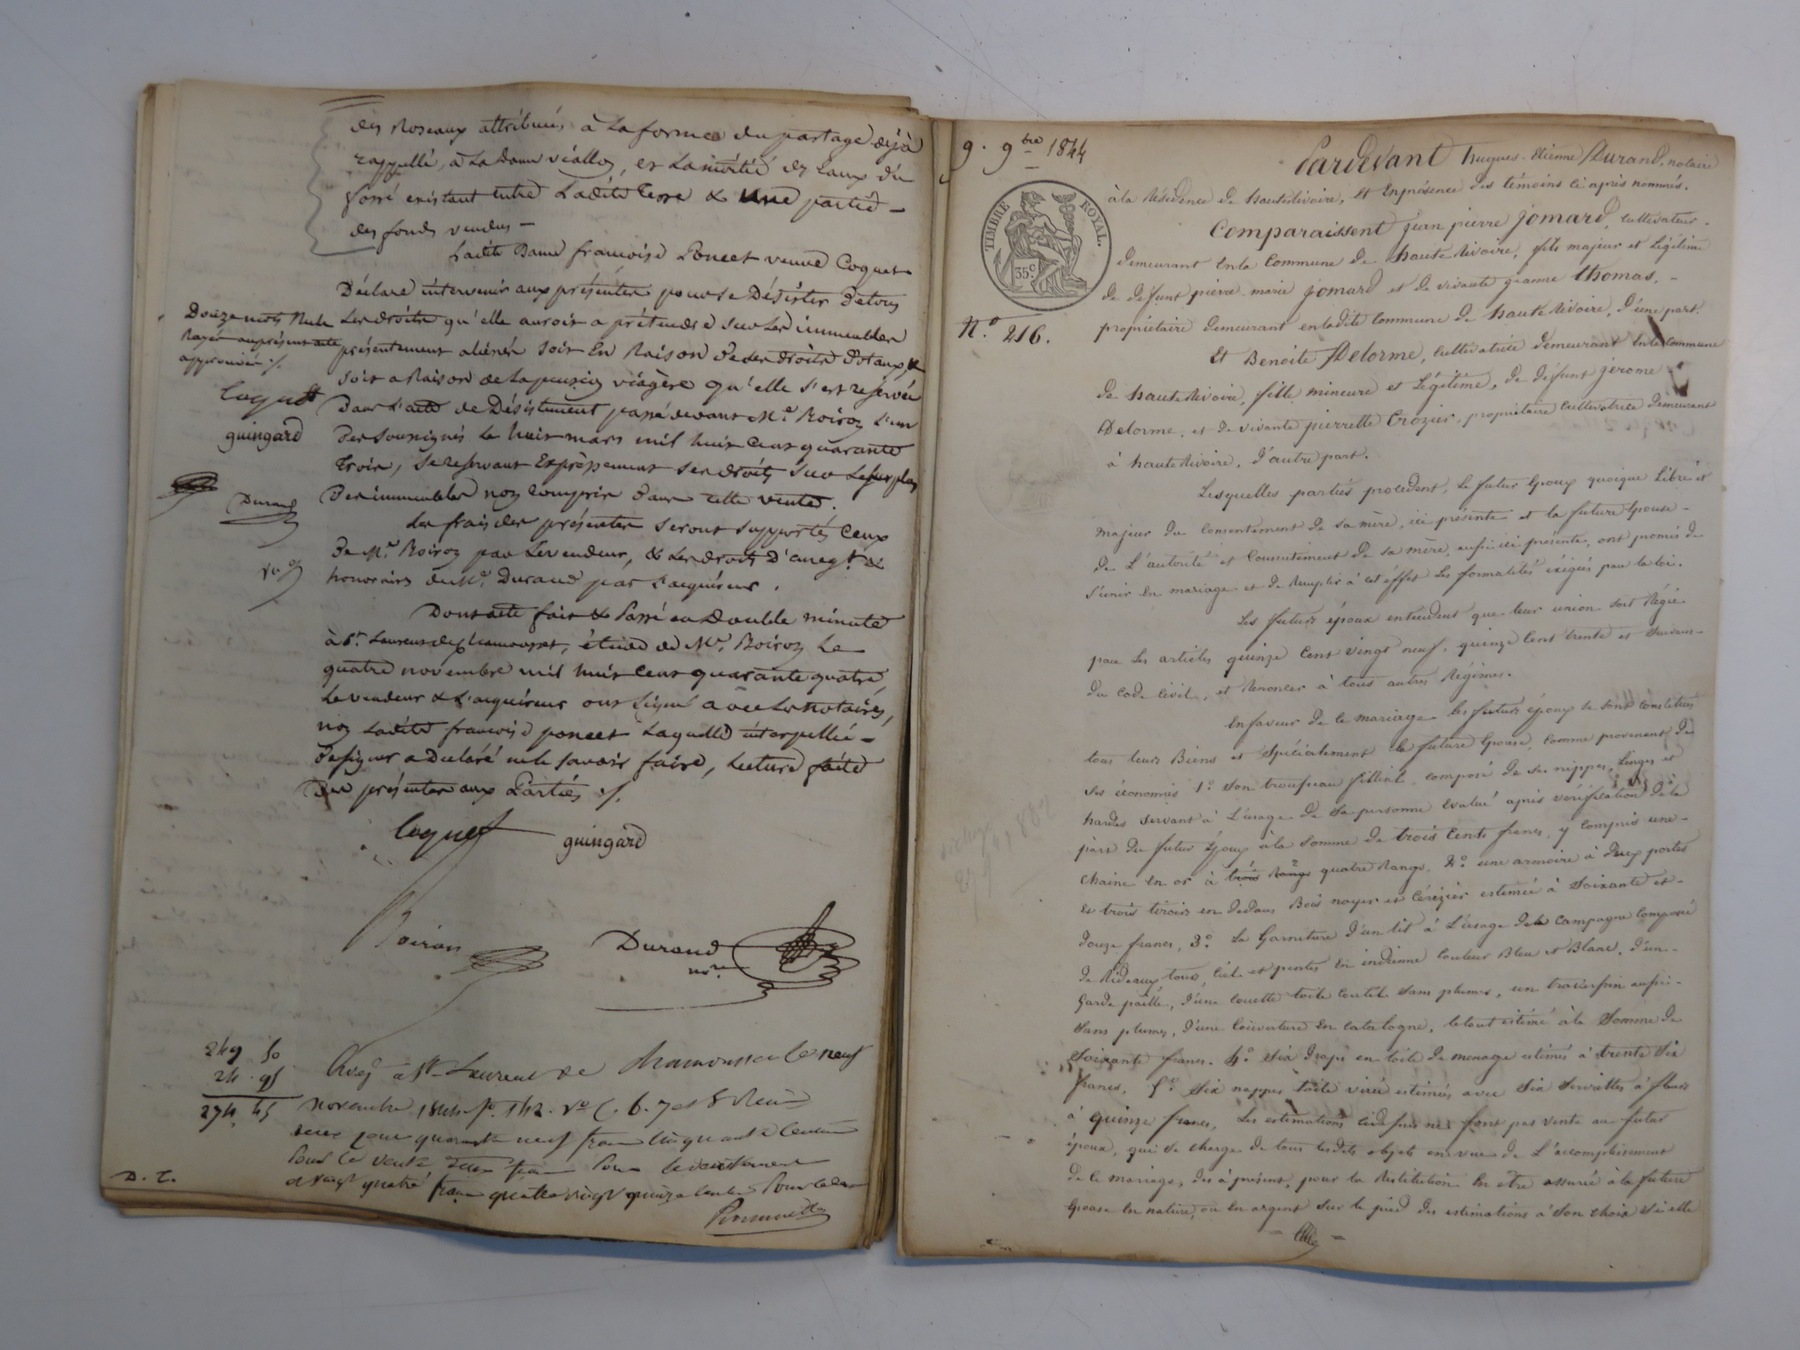 des Roseaux attribués à la forme du partage déjà
rappellé, à La Dame viallon, et La moitié des Eaux du
fossé existant entre Ladite Terre & une partie
des fonds vendus
Ladite Dame francoise Poncet veuve Coquet
Déclare intervenir aux présentes pour se Désister de tous
Les droits qu'elle auroit a prétendre sur Les immeubles
présentement aliénés soit En Raison de ses droits Dotaux, &
soit a Raison de La pension viagère qu'elle s'est reservée
Dans L'acte de Désistement passé devant Me. Roiron L'un
Des soussignés Le huit mars mil huit cent quarante
Trois, se reservant Expressement ses droits sur Le surplus
Des immeubles non compris dans cette vente.
Les frais des présentes seront supportés Ceux
De Me. Roiron par Le vendeur, & Les droits d'enregt. &
honoraires de Me. Durand par L'acquéreur.
Dont acte fait & Passé en Double minute
à St. Laurent de Chamousset, étude de Me. Roiron Le
quatre novembre mil huit cent quarante quatre,
Le vendeur & L'acquéreur ont signé avec Les notaires,
non Ladite francoise poncet Laquelle interpellée
De signer a Déclaré ne le savoir faire, Lecture faite
Des présentes aux Parties ./.
Douze mots Nuls
Rayés au présent acte
approuvés ./.
Coquet
guingard
Durand
Coquet
guingard
Roiron
Durand
nore.
249 50
24 95
274 45
Enregé à St. Laurent de Chamousset le neuf
novembre 1844 fo. 142. Vo. C. 6. 7 et 8 Reçu
deux cent quarante neuf francs cinquante centimes
Pour la vente deux francs Pour le désistement
et vingt quatre francs quatre vingt quinze centimes Pour le
D. C.
9. 9bre 1844
TIMBRE ROYAL.
35 c
No. 216.
Pardevant hugues-Etienne Durand, notaire
à la Résidence de haute Rivoire, Et En présence des témoins ci après nommés.
Comparaissent Jean pierre Jomard, cultivateur
demeurant En la Commune de haute Rivoire, fils majeur et Légitime
de defunt pierre-marie Jomard et de vivante jeanne thomas,
propriétaire demeurant en ladite Commune de haute Rivoire, d'une part.
Et Benoite Delorme, Cultivatrice demeurant En la commune
de haute Rivoire, fille mineure et Légitime, de defunt jérome
Delorme, et de vivante pierrette Crozier, propriétaire Cultivatrice demeurant
à haute Rivoire, d'autre part.
Lesquelles parties procédent, Le futur Epoux quoique Libre et
majeur du Consentement de sa mère, ici présente et la future Epouse
de L'autorité et Consentement de sa mère, aussi ici présente, ont promis de
s'unir En mariage et de Remplir à cet effet Les formalités éxigées par la loi.
Les futurs époux entendent que leur union soit Régie
par Les articles quinze Cent vingt neuf, quinze Cent trente et Suivans
du Code Civil, et Renoncer à tous autres Régimes.
En faveur de ce mariage Les futurs époux se sont constitués
tous leurs Biens et Spécialement la future Epouse, Comme provenant de
ses économies 1o. Son trousseau filliel composé de ses nippes, Linges et
hardes servant à L'usage de sa personne Evalué après vérification de la
part du futur Epoux à la Somme de trois Cents francs, y compris une
Chaine En or à trois Rangs quatre Rangs. 2o. une armoire à deux portes
et trois tiroirs en dedans Bois noyer et Cérizier estimée à Soixante et
douze francs, 3o. La Garniture d'un Lit à L'usage de la Campagne Composée
de Rideaux, tour, Ciel et pentes En indienne Couleur Bleu et Blanc, d'un
Garde paille, d'une Couette toile Coutil sans plumes, un traversin aussi
sans plumes, d'une Couverture En Catalogne, le tout estimé à la Somme de
Soixante francs. 4o. Six draps en toile de menage estimés à trente Six
francs, 5o. Six nappes toile virée estimées avec Six Serviettes à fleurs
à quinze francs, Les estimations ci dessus ne font pas vente au futur
époux, qui se charge de tous lesdits objets en vue de L'accomplissement
de ce mariage, dès à présent, pour la Restitution En être assurée à la future
Epouse En nature, ou En argent Sur le pied des estimations à Son Choix Si elle